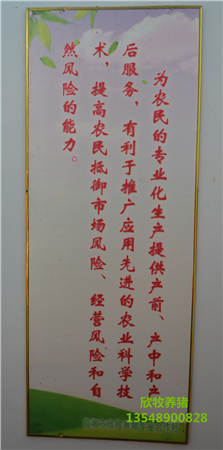 为农民的专业化生产提供产前、产中和产
后服务，有利于推广应用先进的农业科学技
术，提高农民抵御市场风险、经营风险和自
然风险的能力。
欣牧养猪
13548900828